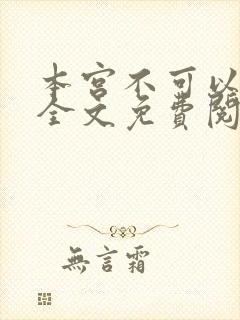 本宮不可以
全文免費閱
無言霜